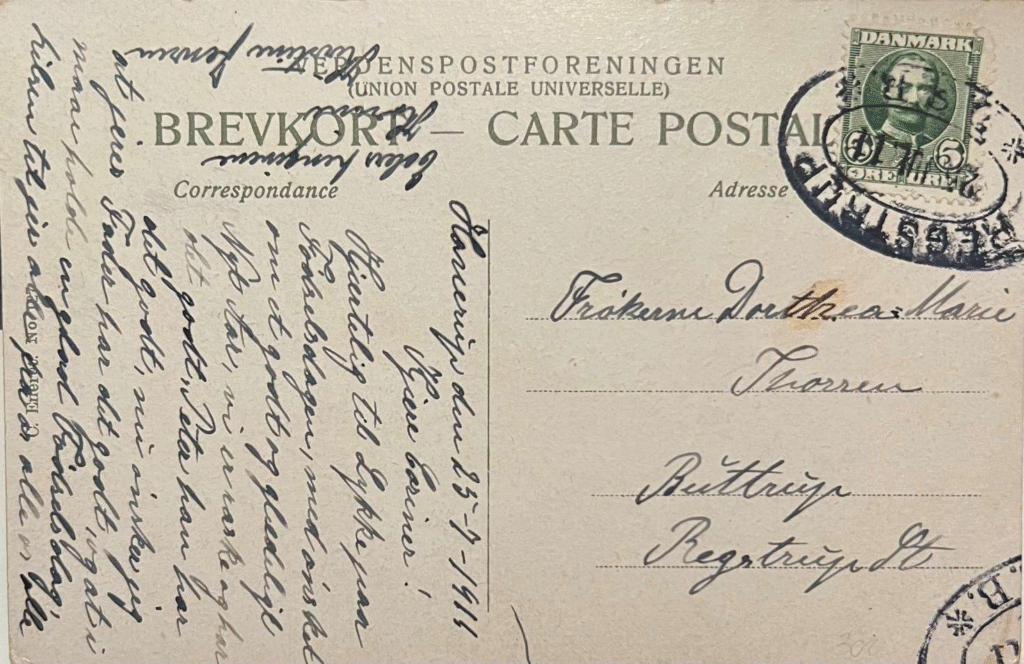 VERDENSPOSTFORENINGEN
(UNION POSTALE UNIVERSELLE)
BREVKORT — CARTE POSTALE
Correspondance
Adresse
DANMARK
5 5
ØRE ØRE
REGSTRUP
den 25-7-1911
Kjære
Hjertelig til Lykke paa
Födselsdagen, med önsket
om et godt og glædeligt
Nyt Aar, vi er raske og har
det godt, Peter han har
det godt, nu önsker jeg
at jeres Fader har det godt, og at i
maa holde en glad Födselsdag,
hilsen til jer alle fra os alle
Kristine Jensen
Frökerne Dorthea=Marie
Thorsen
Buttrup
Regstrup St